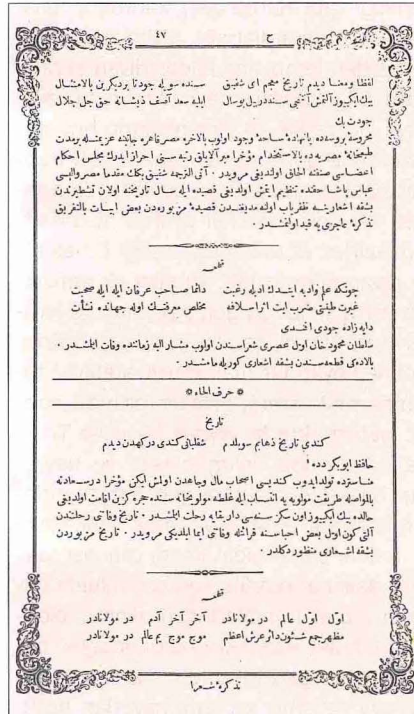 ح ٤٧
لفظا ومعنا ديدم تاريخ معجم اى شفيق سنده سويله جودتا برديكرين بالامتثال
بيك ايكيوز آلتمش آلتنجى سنددر بيل بوسال ايليه سعد آصف ذيشانه حق جل جلال
جودت بك
محروسهٔ بروسه‌ده پانهادهٔ ساحهٔ وجود اولوب بالاخره مصر قاهره جانبنه عزيمتله برمدت
طبعخانهٔ مصريه‌ده بالاستخدام مؤخرا ميرآلايلق رتبه سنى احراز ايدرك مجلس احكام
اعضاسى صنفنه الحاق اولنديغى مرويدر . آتى الترجمه شفيق بك مقدما مصر واليسى
عباس پاشا حقنده تنظيم ايتمش اولديغى قصيده ايله سال تاريخنه اولان تشطيرندن
بشقه اشعارينه ظفرياب اوله مديغمدن قصيدهٔ مزبوره‌دن بعض ابيات بالتفريق
تذكرهٔ عاجزى يه قيد اولنمشدر .
قطعه
چونكه علم وادبه ايتدك ادبله رغبت دائما صاحب عرفان ايله ايله صحبت
غيرت طبعنى ضرب ايت اثر اسلافه مخلص معرفتك اوله جهانده نشأت
دايه زاده جودى افندى
سلطان محمود خان اول عصرى شعراسندن اولوب مشار اليه زماننده وفات ايلمشدر .
بالاده‌كى قطعه سندن بشقه اشعارى كوريله مامشدر .
* حرف الحاء *
تاريخ
كندى تاريخ ذهابم سويلدم شقلبانى كندى در كهدن ديدم
حافظ ابوبكر دده
مناسترده تولد ايدوب كنديسى اصحاب مال وجاهدن اولمش ايكن مؤخرا درسعادته
بالمواصله طريقت مولويه يه انتساب ايله غلطه مولويخانه سنده حجره كزين اقامت اولديغى
حالده بيك ايكيوز اون سكز سنه سى دار بقايه رحلت ايلمشدر . تاريخ وفاتى رحلتندن
آلتى كون اول بعض احباسنه قرائتله وفاتنى ايما ايلديكى مرويدر . تاريخ مزبوردن
بشقه اشعارى منظور دكلدر
قطعه
اول اول عالم در مولانادر آخر آخر آدم در مولانادر
مظهر جمع شئون دائر عرش اعظم موج موج يم عالم در مولانادر
تذكرهٔ شعرا